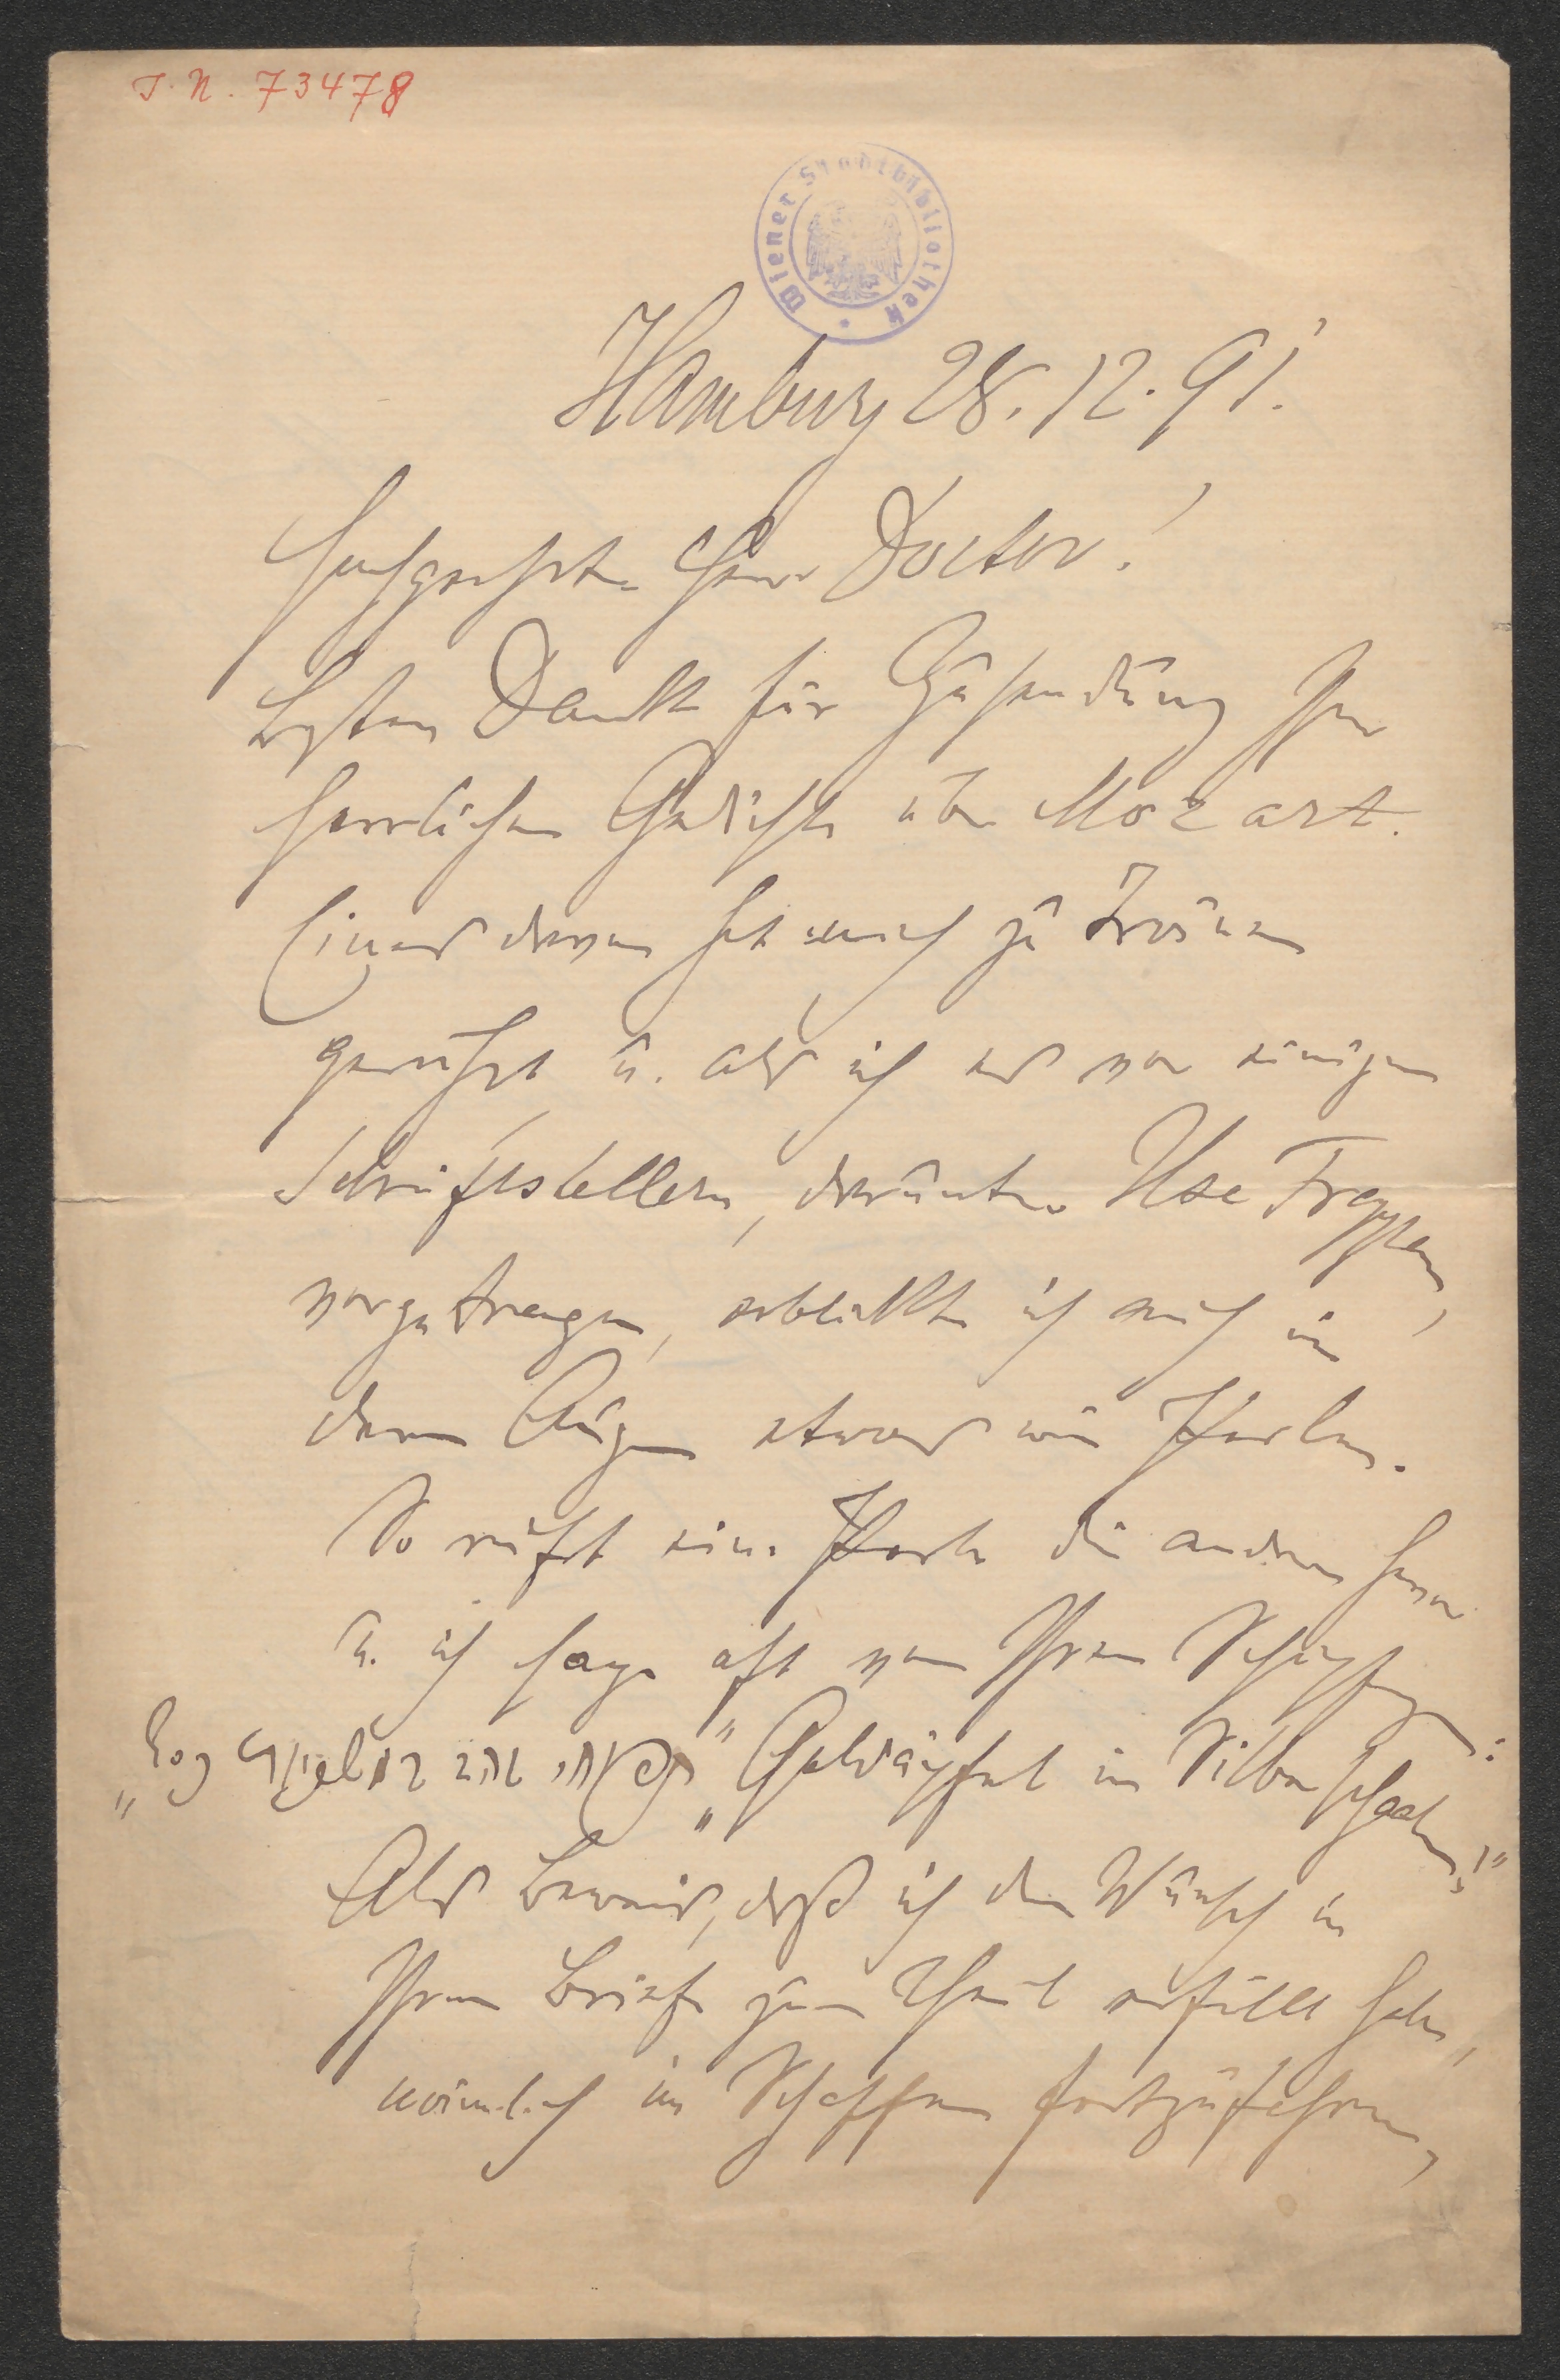 I. N. 73478
Wiener Stadtbibliothek
Hamburg 28. 12. 91.
Hochgeehrter Herr Doctor!
Besten Dank für Zusendung Ihrer
herrlichen Gedichte über Mozart.
Eines davon hat mich zu Tränen
gerührt u. als ich es vor einigen
Schriftstellern, darunter Ilse Frapan,
vorgetragen, erblickte ich auch in
deren Augen etwas wie Perlen.
So ruft eine Perle die andere hervor
u. ich sage oft von Ihren Schöpfungen:
„תפוחי זהב במשכיות כסף" „Goldäpfel in Silberschaalen!"
Als Beweis, daß ich den Wunsch in
Ihrem Briefe zum Theil erfüllt habe,
nämlich im Schaffen fortzufahren,